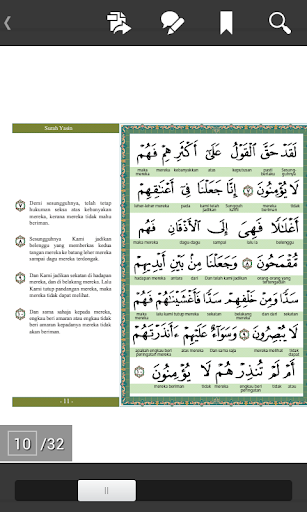 Surah Yasin
Demi sesungguhnya, telah tetap
hukuman seksa atas kebanyakan
mereka, kerana mereka tidak mahu
beriman.
Sesungguhnya Kami jadikan
belenggu yang memberkas kedua
tangan mereka ke batang leher mereka
sampai dagu
mereka terdongak.
Dan Kami jadikan sekatan di hadapan
mereka, dan di belakang mereka. Lalu
Kami tutup pandangan mereka, maka
mereka tidak dapat melihat.
Dan sama sahaja kepada mereka,
engkau beri amaran atau engkau tidak
beri amaran kepadanya mereka tidak
akan beriman.
- 11 -
لَقَدْ حَقَّ ٱلْقَوْلُ عَلَىٰٓ أَكْثَرِهِمْ فَهُمْ
maka mereka kebanyakkan mereka atas keputusan pasti Sesung guhnya
لَا يُؤْمِنُونَ إِنَّا جَعَلْنَا فِىٓ أَعْنَٰقِهِمْ
leher-leher mereka pada kami telah jadikan beriman tidak
أَغْلَٰلًا فَهِىَ إِلَى ٱلْأَذْقَانِ فَهُم
maka mereka dagu-dagu sampai lalu ia belenggu
مُّقْمَحُونَ وَجَعَلْنَا مِنۢ بَيْنِ أَيْدِيهِمْ
mereka hadapan antara dari Dan Kami telah jadikan
سَدًّا وَمِنْ خَلْفِهِمْ سَدًّا فَأَغْشَيْنَٰهُمْ فَهُمْ
maka mereka sekatan belakang mereka dan dari sekatan
لَا يُبْصِرُونَ وَسَوَآءٌ عَلَيْهِمْ ءَأَنذَرْتَهُمْ
apakah engkau beri peringatan mereka atas mereka Dan sama saja mereka melihat tidak dapat
أَمْ لَمْ تُنذِرْهُمْ لَا يُؤْمِنُونَ
mereka beriman tidak engkau beri peringatan tidak atau
10 /32